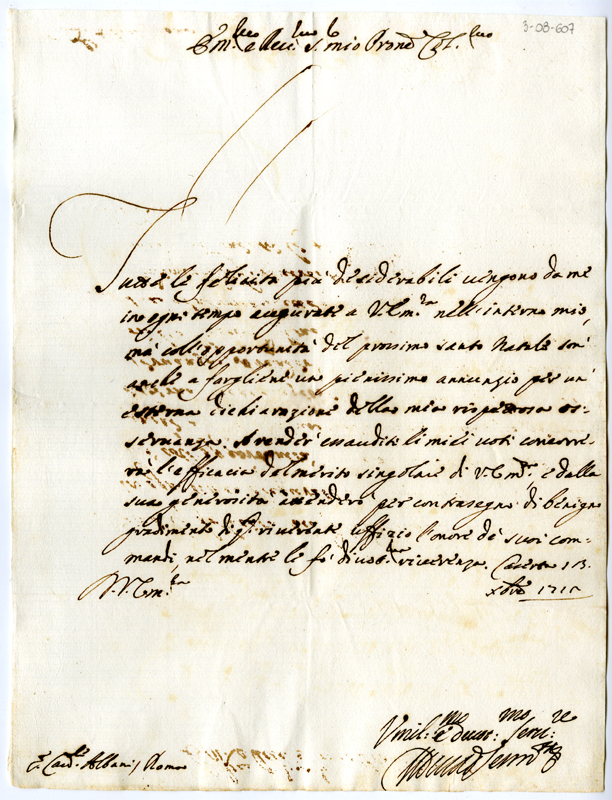 3-08-607
Em.mo e Rev.mo S. mio Pron Col.mo
Tutte le felicità più desiderabili vengono da me
in ogni tempo augurate a V. Em.za nell'interno mio,
mà coll'opportunità del prossimo santo Natale son'
anche a fargliene un pienissimo annunzio per un'
esterna dichiarazione della mia rispettosa os-
servanza. A render' esauditi li miei voti concorre-
rà l'efficacia del merito singolare di V. Em.za e dalla
sua generosità attenderò per contrasegno di benigno
gradimento di q.to riverente uffizio l'onore de suoi com-
mandi, nel mentre le fò riverenza. Caserta 13.
V. Em.za Xbre
Umil.mo e
E. Card.le Albani / Roma